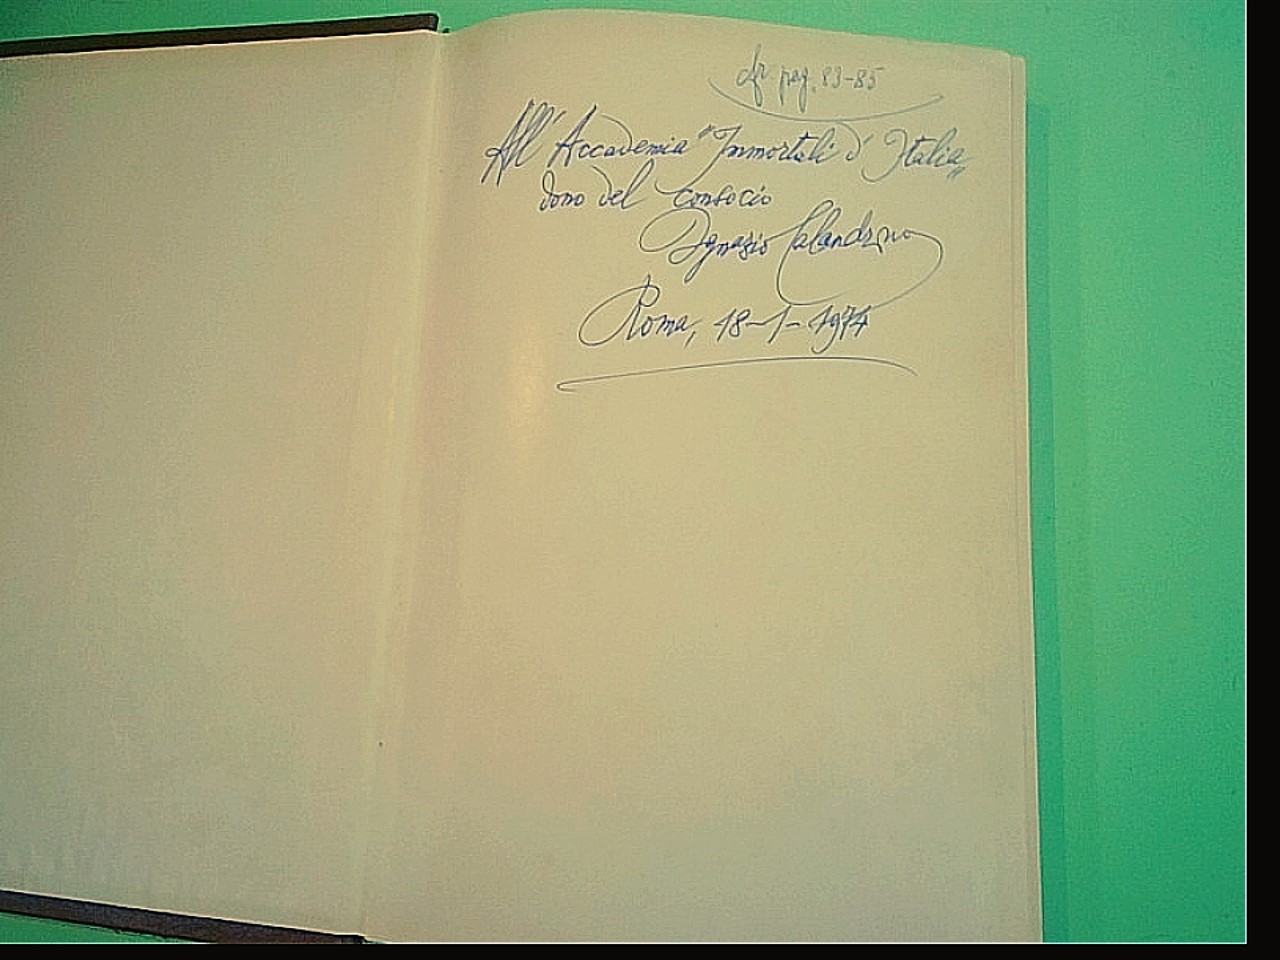 cfr pag. 83-85
All'Accademia "Immortali d'Italia„
dono del consocio
Ignazio Calandrino
Roma, 18-1-1974